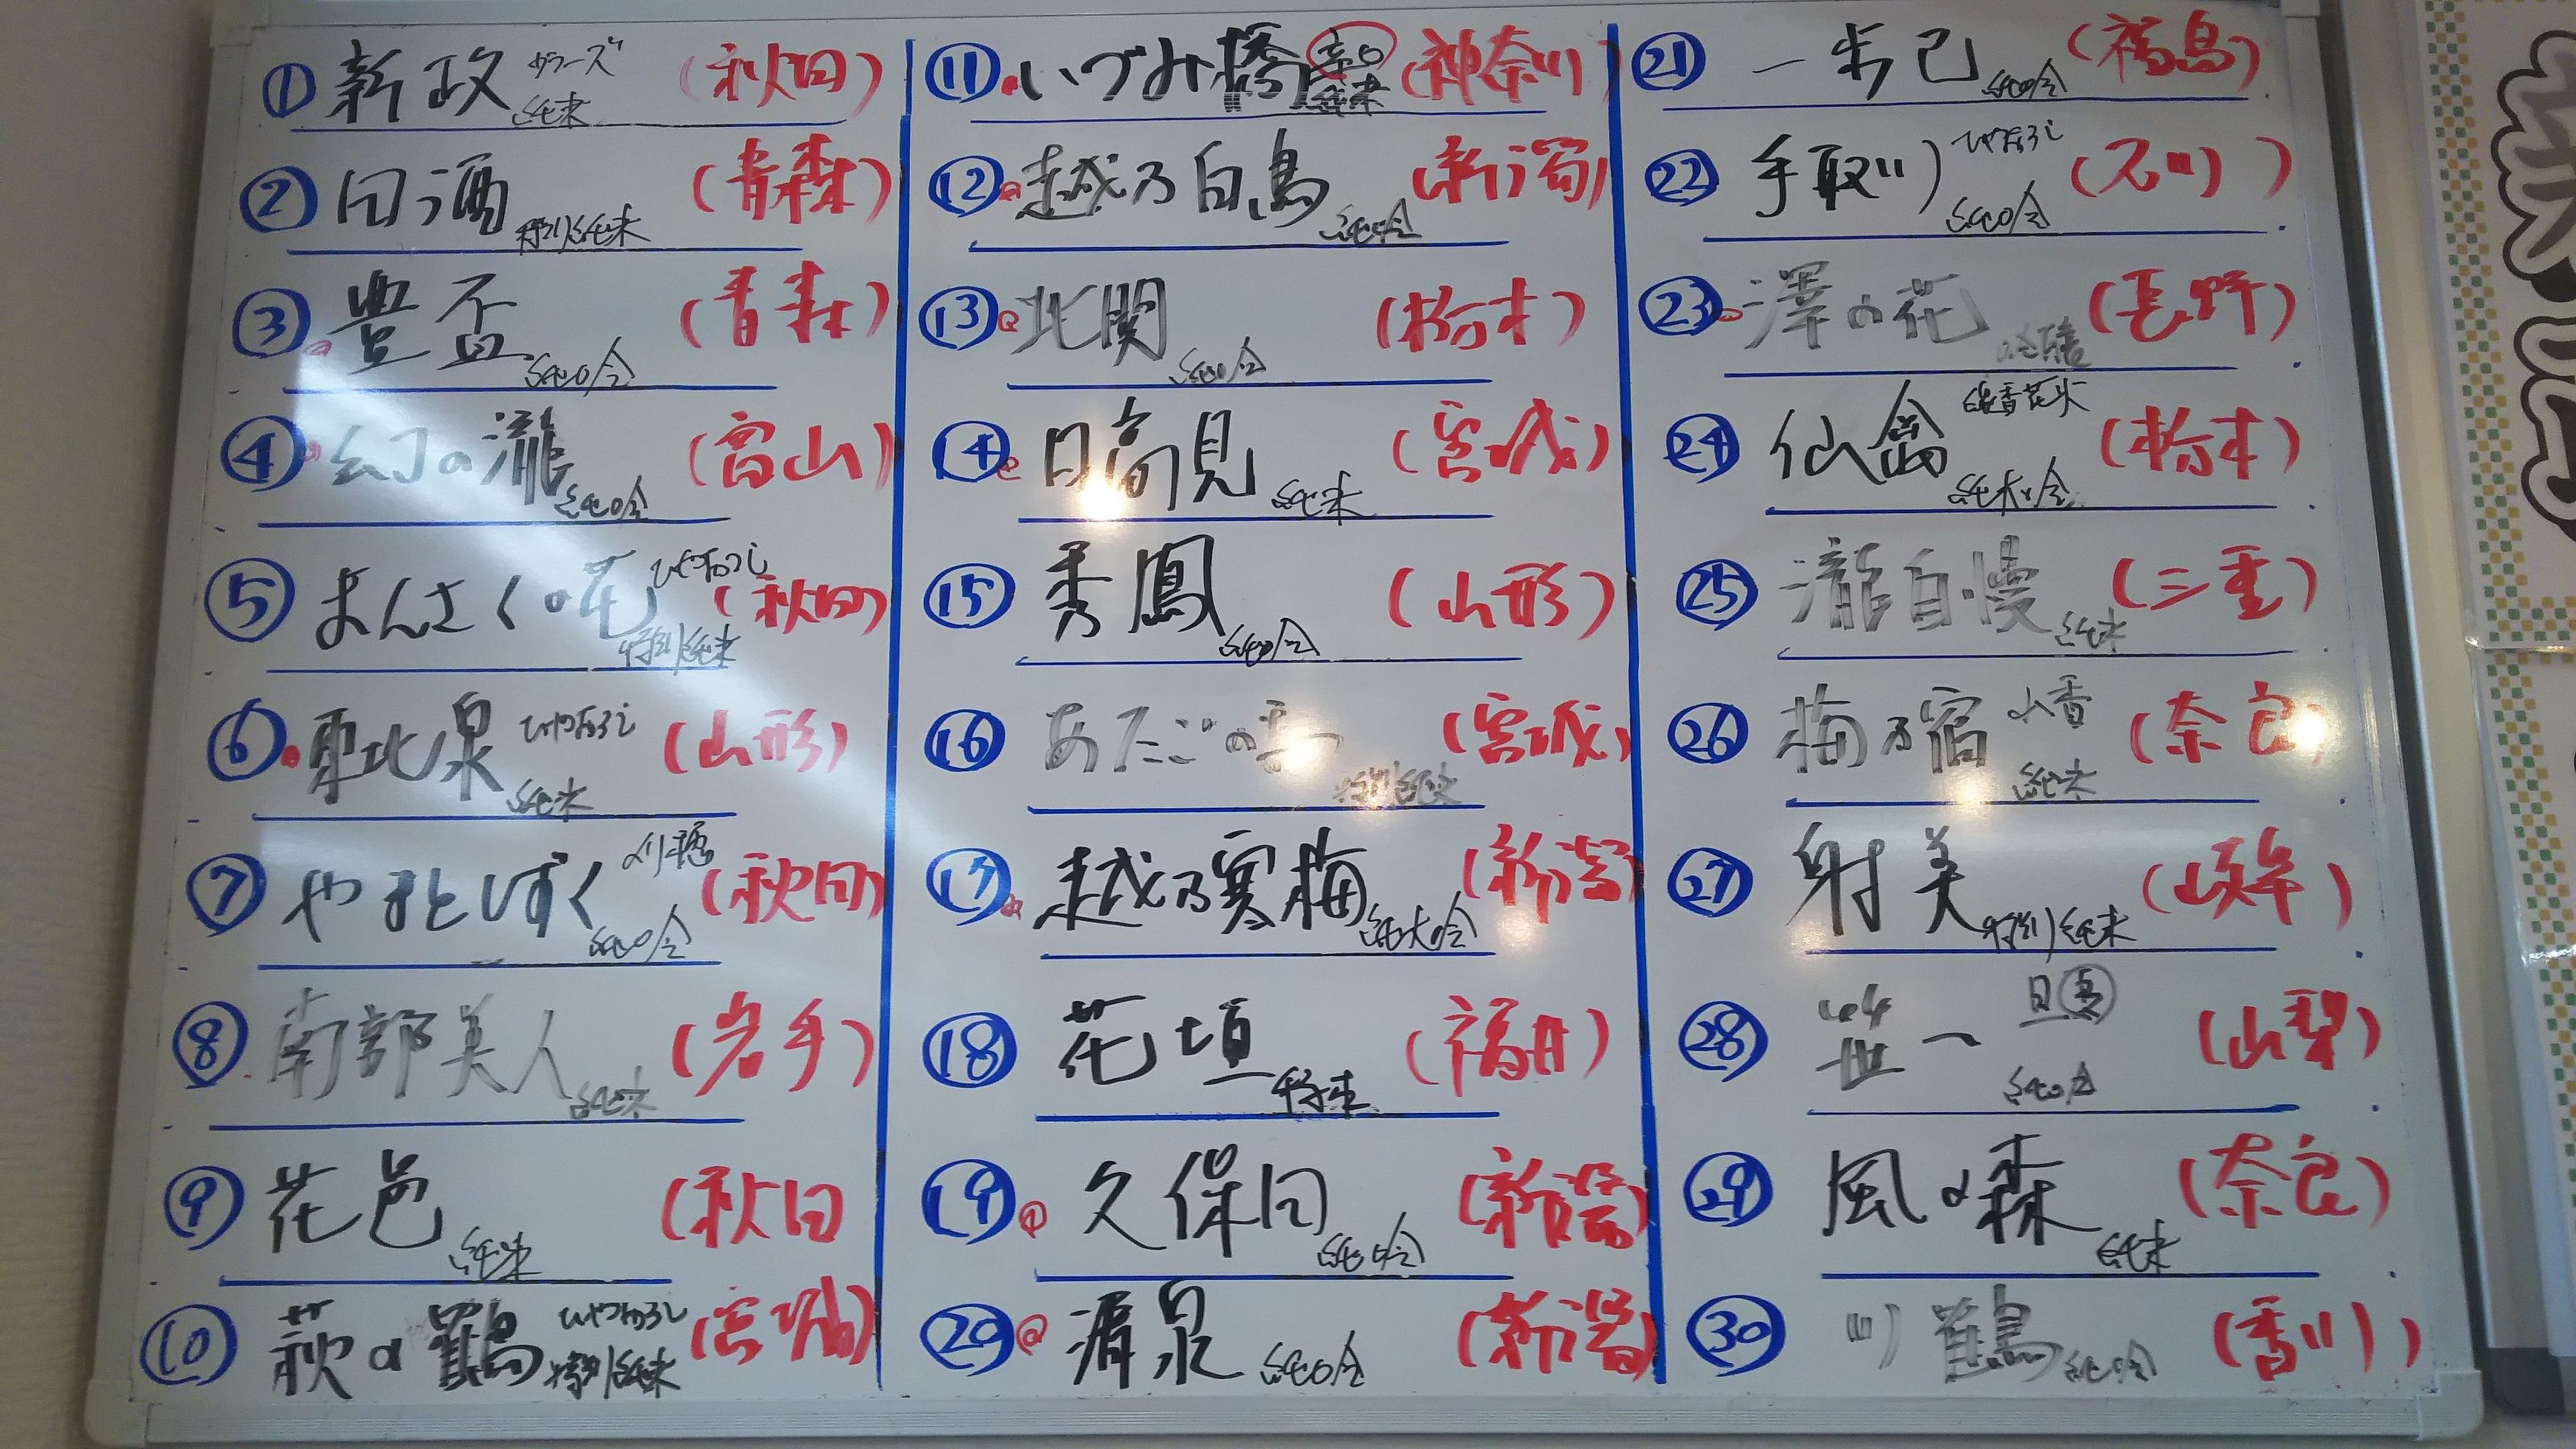 ① 新政 カラーズ 純米 (秋田)
② 田酒 特別純米 (青森)
③ 豊盃 純吟 (青森)
④ 幻の瀧 純吟 (富山)
⑤ まんさくの花 ひやおろし 特別純米 (秋田)
⑥ 東北泉 ひやおろし 純米 (山形)
⑦ やまとしずく 純吟 (秋田)
⑧ 南部美人 純米 (岩手)
⑨ 花邑 純米 (秋田
⑩ 萩の鶴 ひやおろし 特別純米 (宮城)
⑪ いづみ橋 辛口 純米 (神奈川)
⑫ 越乃白鳥 純吟 (新潟)
⑬ 北関 純吟 (栃木)
⑭ 日高見 純米 (宮城)
⑮ 秀鳳 純吟 (山形)
⑯ あたごの 特別純米 (宮城)
⑰ 越乃寒梅 純大吟 (新潟)
⑱ 花垣 特純 (福井)
⑲ 久保田 純吟 (新潟)
⑳ 清泉 純吟 (新潟)
㉑ 一歩己 純吟 (福島)
㉒ 手取川 ひやおろし 純吟 (石川)
㉓ 澤の花 (長野)
㉔ 仙禽 線香花火 純米吟 (栃木)
㉕ 瀧自慢 純米 (三重)
㉖ 梅乃宿 山香 純米 (奈良)
㉗ 射美 特別純米 (岐阜)
㉘ 笹一 旦 純吟 (山梨)
㉙ 風の森 純米 (奈良)
㉚ 川鶴 純吟 (香川)